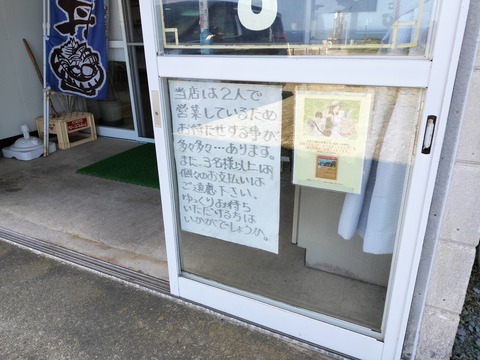 当店は2人で
営業しているため
お待たせする事が
多々多々…あります。
また、3名様以上は
個々のお支払いは
ご遠慮下さい。
ゆっくりお待ち
いただける方は
いかがでしょうか。